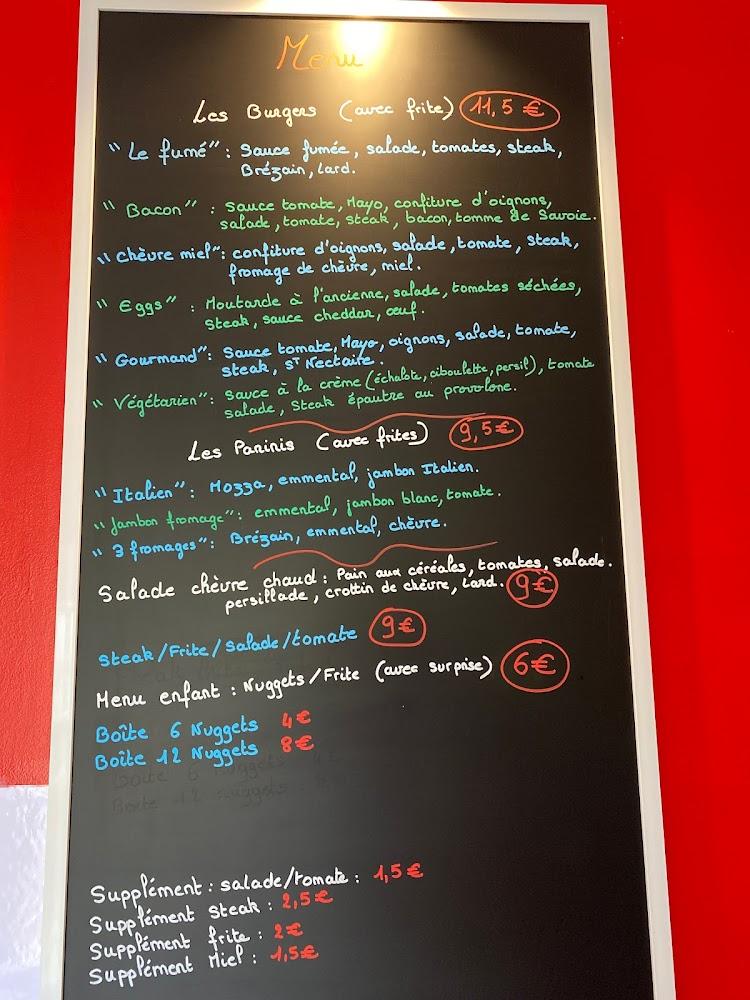 Menu
Les Burgers (avec frite) 11,5 €
"Le fumé" : Sauce fumée, salade, tomates, steak,
Brézain, lard.
"Bacon" : Sauce tomate, Mayo, confiture d'oignons,
salade, tomate, steak, bacon, tomme de Savoie.
"Chèvre miel" : confiture d'oignons, salade, tomate, steak,
fromage de chèvre, miel.
"Eggs" : Moutarde à l'ancienne, salade, tomates séchées,
Steak, sauce cheddar, œuf.
"Gourmand" : Sauce tomate, Mayo, oignons, salade, tomate,
steak, ST Nectaire.
"Végétarien" : sauce à la crème (échalote, ciboulette, persil), tomate
salade, Steak épautre au provolone.
Les Paninis (avec frites) 9,5 €
"Italien" : Mozza, emmental, jambon Italien.
"Jambon fromage" : emmental, jambon blanc, tomate.
"3 fromages" : Brézain, emmental, chèvre.
Salade chèvre chaud : Pain aux céréales, tomates, salade.
persillade, crottin de chèvre, lard. 9 €
Steak/Frite/Salade/tomate 9 €
Menu enfant : Nuggets/Frite (avec surprise) 6 €
Boîte 6 Nuggets 4 €
Boîte 12 Nuggets 8 €
Boîte 6 Nuggets
Boîte 12 Nuggets
Supplément : salade/tomate : 1,5 €
Supplément steak : 2,5 €
Supplément frite : 2 €
Supplément Miel : 1,5 €